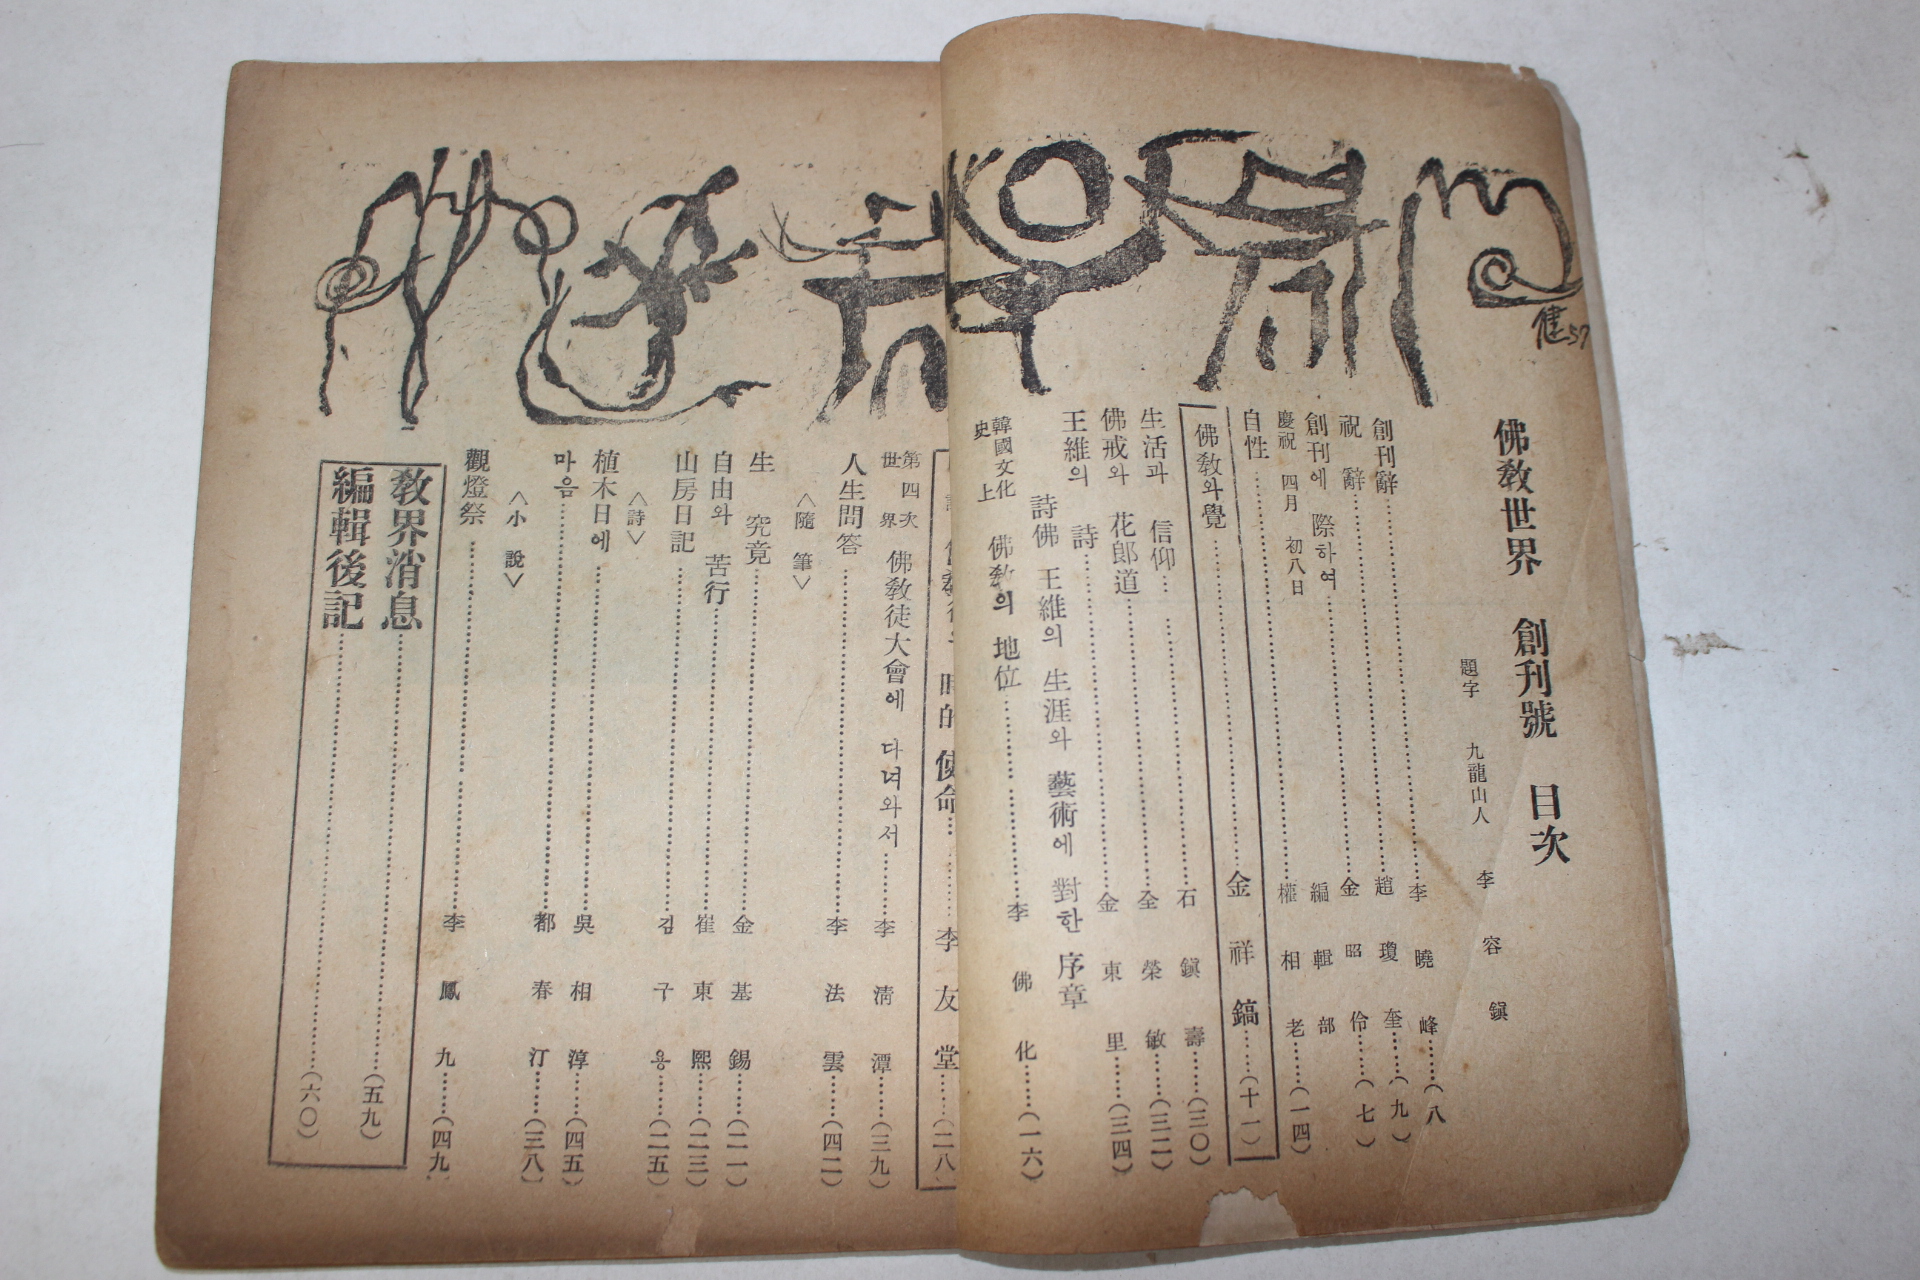 佛敎世界 創刊號 目次
題字 九龍山人 李容鎭
創刊辭……李曉峰……(八
祝辭……趙瓊奎……(九)
創刊에 際하여……金昭伶……(七)
慶祝 四月 初八日……編輯部
自性……權相老……(一四)
佛敎와 覺……金祥鎬……(十一)
生活과 信仰……石鎭壽……(三〇)
佛戒와 花郎道……全榮敏……(三二)
王維의 詩……金東里……(三四)
詩佛 王維의 生涯와 藝術에 對한 序章
韓國文化史上 佛敎의 地位……李佛化……(一六)
時的 使命……李友堂……(二八)
第四次 世界 佛敎徒大會에 다녀와서……李淸潭……(三九)
人生問答……李法雲……(四二)
<隨筆>
生 究竟……金基錫……(二一)
自由와 苦行……崔東熙……(二三)
山房日記……김구용……(二五)
<詩>
植木日에……吳相淳……(四五)
마음……都春汀……(三八)
<小說>
觀燈祭……李鳳九……(四九
敎界消息……(五九)
編輯後記……(六〇)
健57